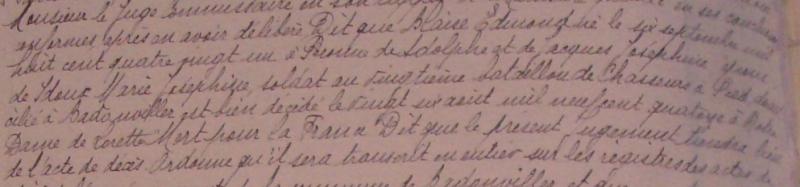 Monsieur le Juge Commissaire en son en ses conclusions
conformes, après en avoir délibéré Dit que Blaise Edmond né le six septembre mil
huit cent quatre vingt un à de Adolphe et de Jacques Joséphine époux
de Idoux Marie Joséphine, soldat au vingtième bataillon de Chasseurs à Pied domi
cilié à Badonviller est bien décédé le vingt six août mil neuf cent quatorze à Notre
Dame de Lorette Mort pour la France Dit que le présent jugement tiendra lieu
de l'acte de décès. Ordonne qu'il sera transcrit en entier sur les registres des actes de
de Badonviller et que